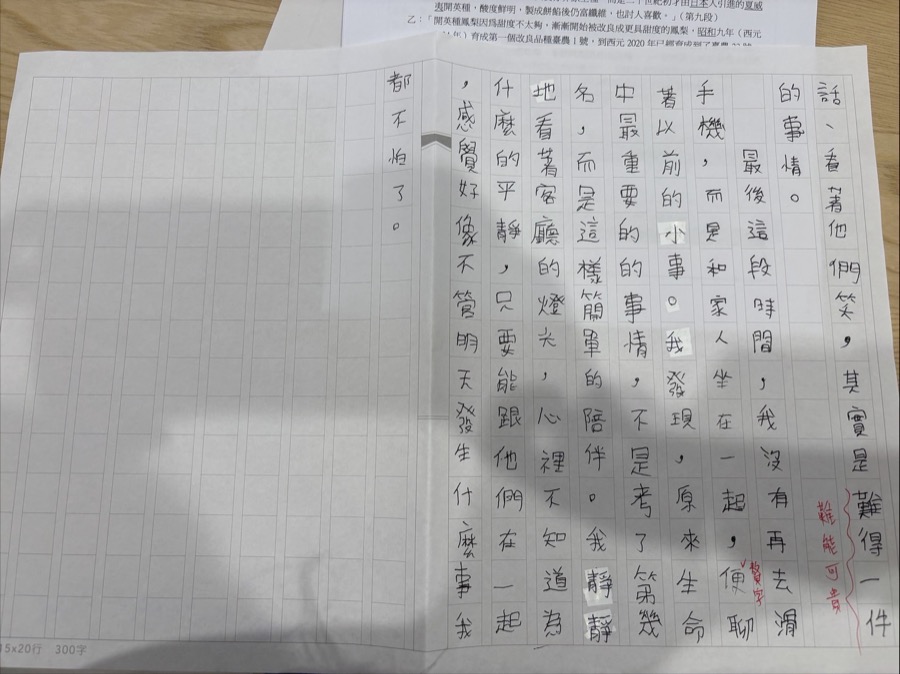 二十世紀初才由日本人引進的夏威
夷開英種，酸度鮮明，製成餅餡後仍富纖維，也討人喜歡。」（第九段）
乙：「開英種鳳梨因為甜度不太夠，漸漸開始被改良成更具甜度的鳳梨，昭和九年（西元
年）育成第一個改良品種臺農1號，到西元2020年已經育成到了臺農
話、看著他們笑，其實是難得一件
難能可貴
的事情。
最後這段時間，我沒有再去滑
贅字
手機，而是和家人坐在一起，便聊
著以前的小事。我發現，原來生命
中最重要的的事情，不是考了第幾
名，而是這樣簡單的陪伴。我靜靜
地看著客廳的燈光，心裡不知道為
什麼的平靜，只要能跟他們在一起
，感覺好像不管明天發生什麼事我
都不怕了。
15x20行 300字